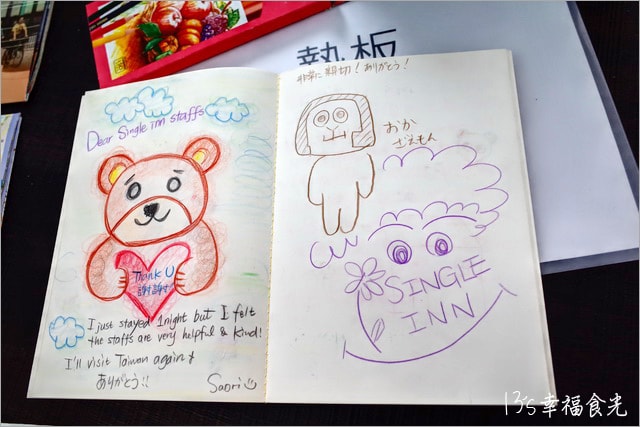 Dear Single inn staffs
Thank U
謝謝!
I just stayed 1night but I felt
the staffs are very helpful & kind!
I'll visit Taiwan again
ありがとう!!
Saori
非常に親切! ありがとう!
おか
ざえもん
SINGLE
INN
熱板
13's幸福食光